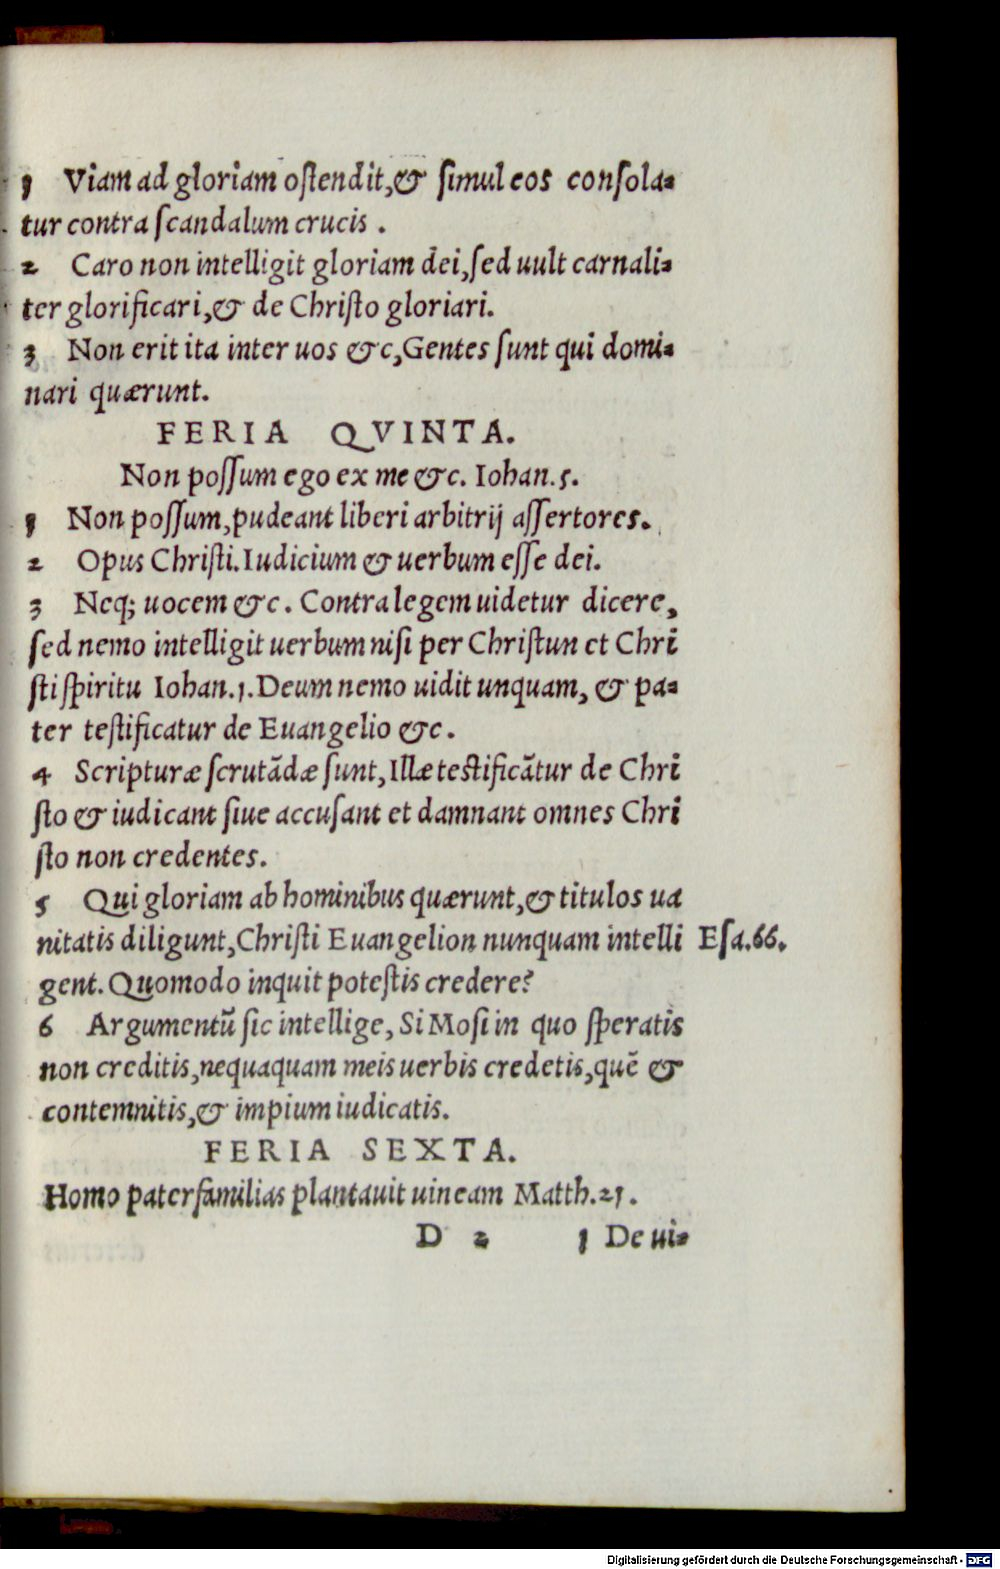 1 Viam ad gloriam oſtendit,& ſimul eos conſola⸗
tur contra ſcandalum crucis .
2 Caro non intelligit gloriam dei,ſed uult carnali⸗
ter glorificari,& de Chriſto gloriari.
3 Non erit ita inter uos &c,Gentes ſunt qui domi⸗
nari quærunt.
FERIA QVINTA.
Non poſſum ego ex me &c. Iohan.5.
1 Non poſſum,pudeant liberi arbitrij aſſertores.
2 Opus Chriſti.Iudicium & uerbum eſſe dei.
3 Neq; uocem &c. Contra legem uidetur dicere,
ſed nemo intelligit uerbum niſi per Chriſtun et Chri
ſti ſpiritu Iohan.1.Deum nemo uidit unquam, & pa⸗
ter teſtificatur de Euangelio &c.
4 Scripturæ ſcrutãdæ ſunt,Illæ teſtificãtur de Chri
ſto & iudicant ſiue accuſant et damnant omnes Chri
ſto non credentes.
5 Qui gloriam ab hominibus quærunt,& titulos ua
nitatis diligunt,Chriſti Euangelion nunquam intelli Eſa.66.
gent. Quomodo inquit poteſtis credere?
6 Argumentũ ſic intellige, Si Moſi in quo ſperatis
non creditis,nequaquam meis uerbis credetis,quẽ &
contemnitis,& impium iudicatis.
FERIA SEXTA.
Homo paterfamilias plantauit uineam Matth.21.
D 2 1 De ui⸗
Digitalisierung gefördert durch die Deutsche Forschungsgemeinschaft - DFG